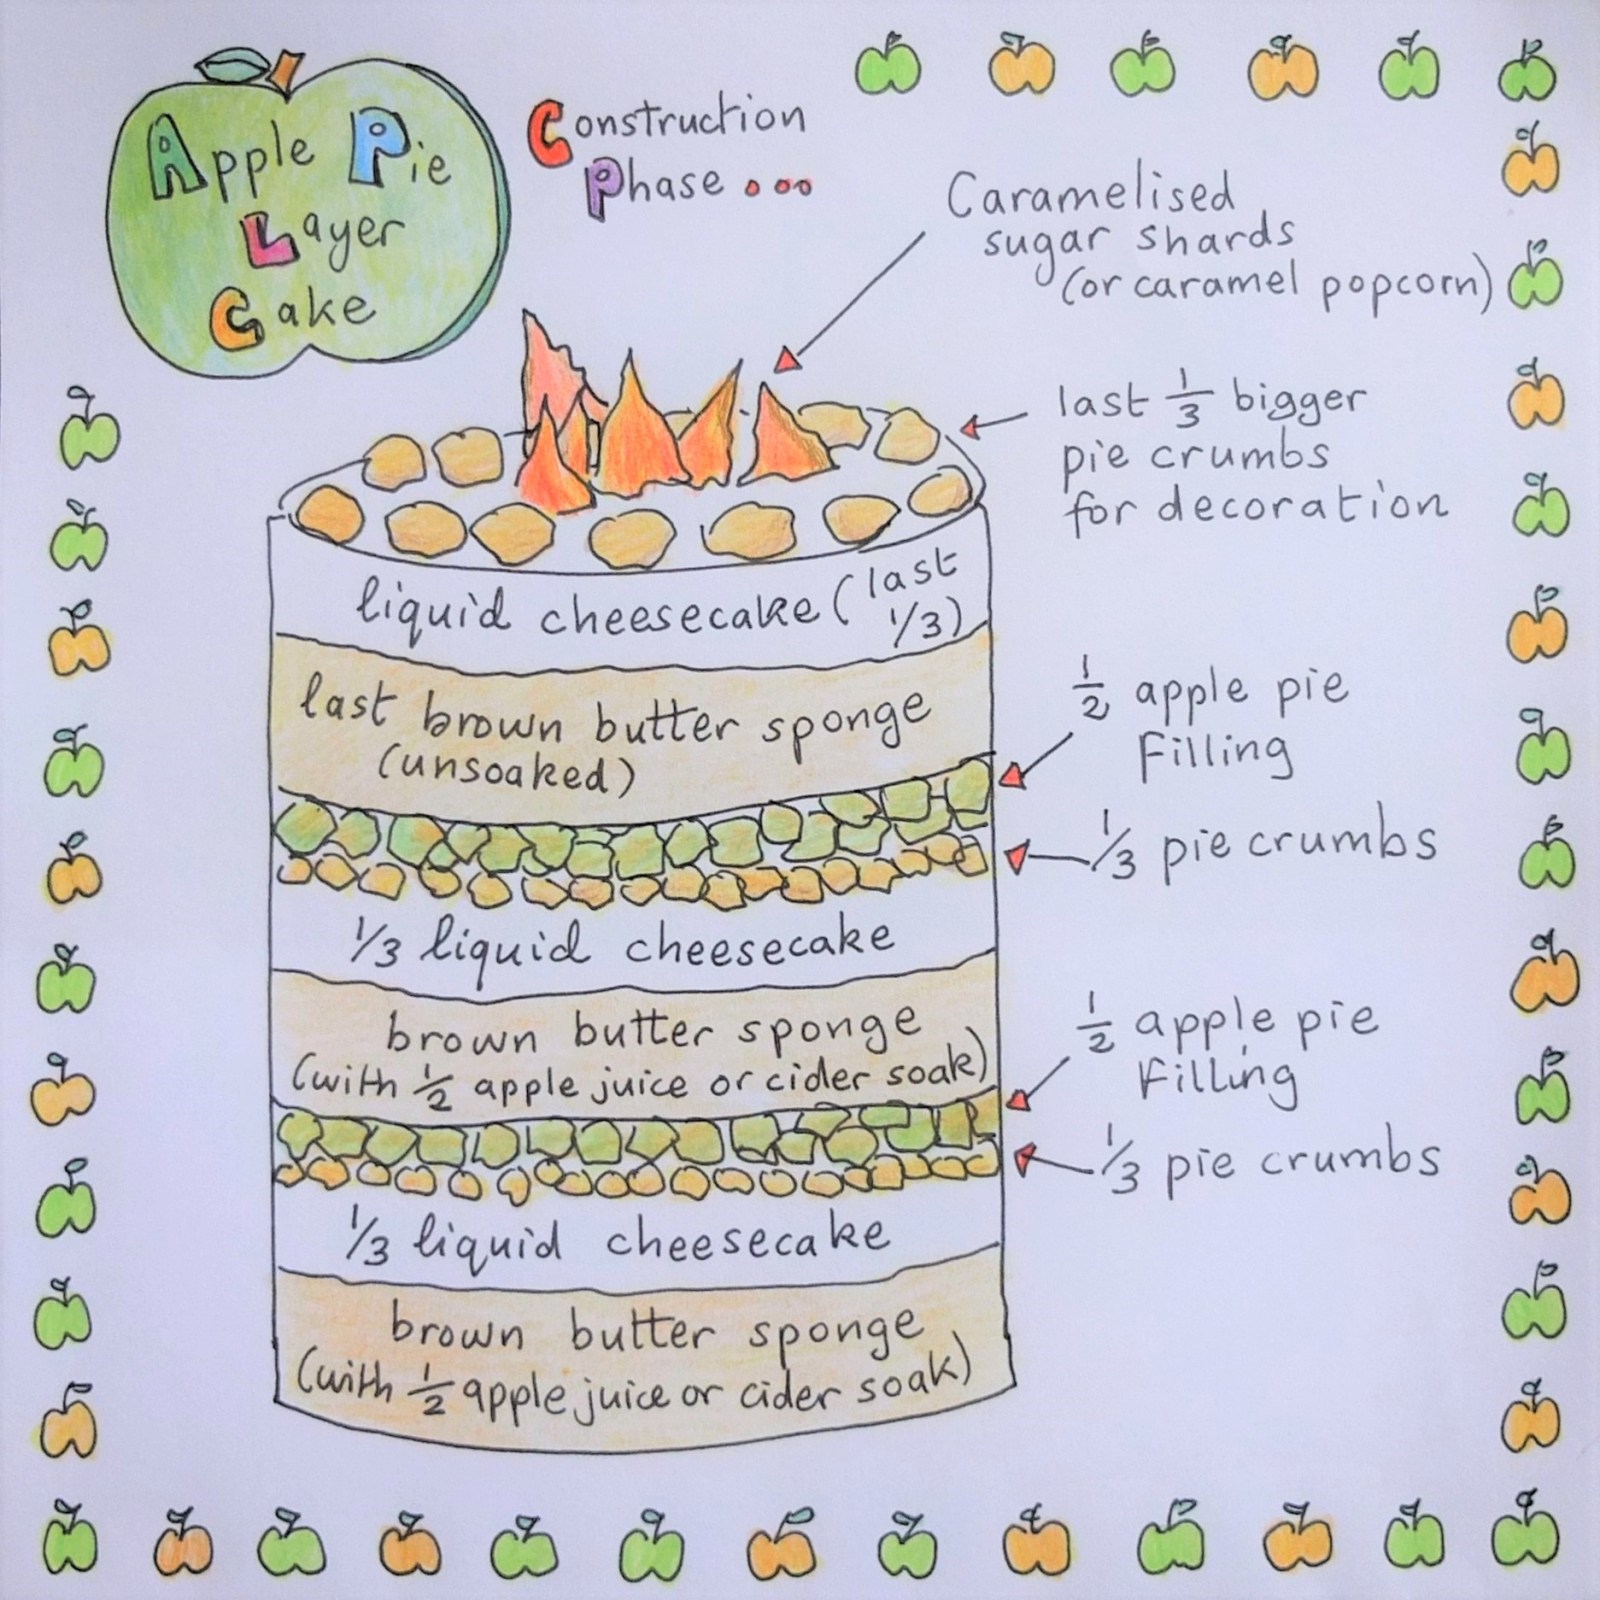 Apple Pie
Layer
Cake
Construction
Phase...
Caramelised
sugar shards
(or caramel popcorn)
last 1/3 bigger
pie crumbs
for decoration
liquid cheesecake (last
1/3)
last brown butter sponge
(unsoaked)
1/2 apple pie
Filling
1/3 pie crumbs
1/3 liquid cheesecake
brown butter sponge
(with 1/2 apple juice or cider soak)
1/2 apple pie
Filling
1/3 pie crumbs
1/3 liquid cheesecake
brown butter sponge
(with 1/2 apple juice or cider soak)